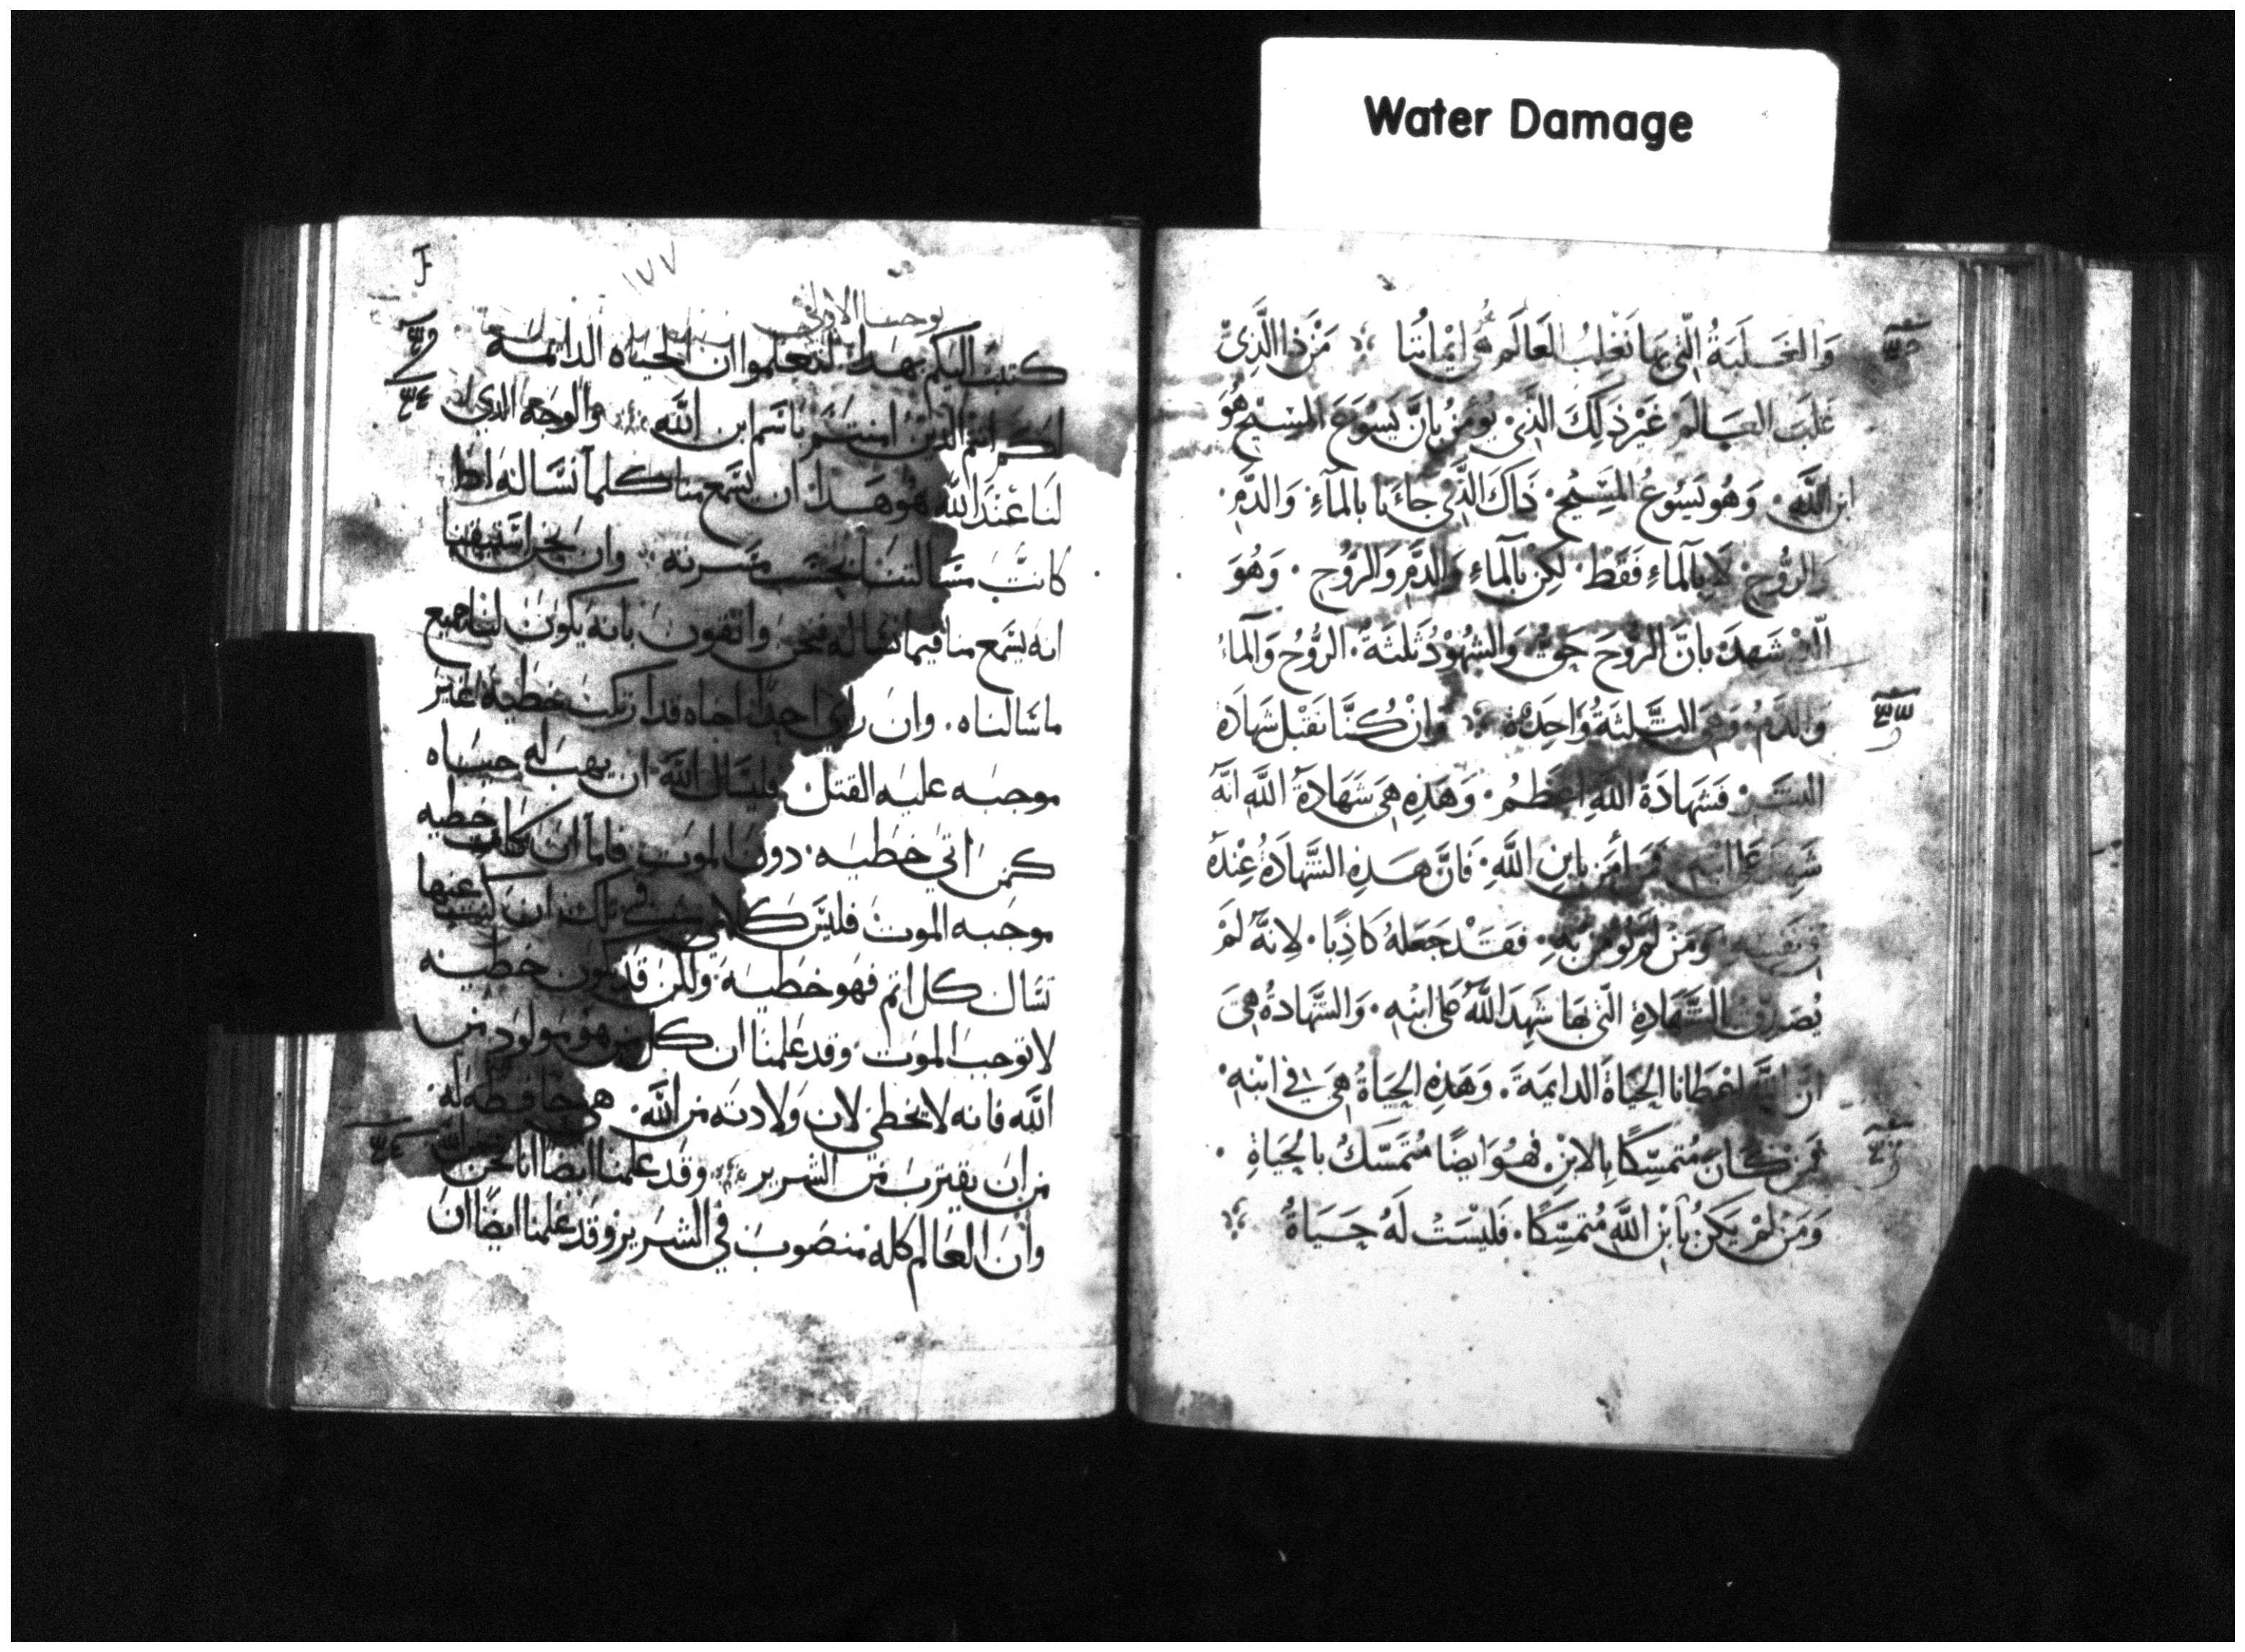 Water Damage
وَالغَلَبَةُ الَّتِي بِهَا نَغْلِبُ العَالَم هُوَ اِيْمَانُنَا مَنْ ذَا الَّذِيْ
غَلَبَ العَالَمَ غَيْرَ ذَلِكَ الَّذِي يُومِنُ بِاَنَّ يَسُوَعَ المَسِيْحِ هُوَ
ابن اللَّهِ وَهُوَ يَسُوْعُ المَسِيْحِ ذَاكَ الَّذِي جَاءَنَا بِالمَآءِ وَالدَّمِ
وَالرُّوْحِ لَا بِالْمَاءِ فَقَطْ لَكِنْ بِالْمَاءِ وَالدَّمِ وَالرُّوْحِ وَهُوَ
شَهِدَ بِاَنَّ الرُّوْحَ حَقٌّ وَالشُّهُوْدُ ثَلَثَةٌ الرُّوْحُ وَالمآءُ
وَالدَّمُ وَهِيَ الثَّلثَةُ وَاحِدَةٌ وَاِنْ كُنَّا نَقْبَلُ شَهَادَةَ
فَشَهَادَةُ اللَّهِ اَعْظَمُ وَهَذِهِ هِيَ شَهَادَةُ اللَّهِ اَنَّهُ
شَهِدَ عَلَى ابنه فَمَن اَمَنَ بِابنِ اللَّهِ فَاِنَّ هَذِهِ الشَّهَادَةُ عِنْدَهُ
وَمَنْ لَمْ يُوْمِنْ بِهِ فَقَدْ جَعَلَهُ كَاذِبًا لِاَنَّهُ لَمْ
يُصَدِّق الشَّهَادَةِ الَّتِي بِهَا شَهِدَ اللَّهُ عَلَى ابْنِهِ وَالشَّهَادَةُ هِيَ
اَنَّ اللَّهَ اعْطَانَا الحَيَاةَ الدايمَةَ وَهَذِهِ الحَيَاةُ هِيَ فِي ابْنِهِ
فَمَنْ كَانَ مُتَمَسِّكًا بِالابْنِ فَهُوَ ايضًا مُتَمَسِّكٌ بِالحَيَاةِ
وَمَنْ لَمْ يَكُنْ بِابْنِ اللَّهِ مُتمَسِّكًا فَلَيْسَتْ لَهُ حَيَاةٌ
١٧٧
يوحنا الاولى
كتبت اليكم بهذا لتعلموا ان الحياه الدايمه
لكم انتم الذين امنتم باسم ابن اللَّه والوجه الذي
لنا عند اللَّه هو هذا ان يسمع منا كلما نساله اذا
كانت مسالتنا بحسب مسرته وان نحن استيقنا
انه يسمع منا فيما نساله فنحن واثقون بانه يكون لنا جميع
ما سالناه وان راى احد اخاه قد ارتكب خطيه غير
موجبه عليه القتل فليسال اللَّه ان يهب له حياه
كمن اتى خطيه دون الموت فاما ان كانت خطيه
موجبه الموت فليس كلامي في تلك ان عنها
تسال كل اثم فهو خطيه ولكن قد تكون خطيه
لا توجب الموت وقد علمنا ان كل من هو مولود من
اللَّه فانه لا يخطي لان ولادته من اللَّه هي حافظه له
من ان يقترب من الشرير وقد علمنا ايضا انا نحن من اللَّه
وان العالم كله منصوب في الشرير وقد علمنا ايضا ان